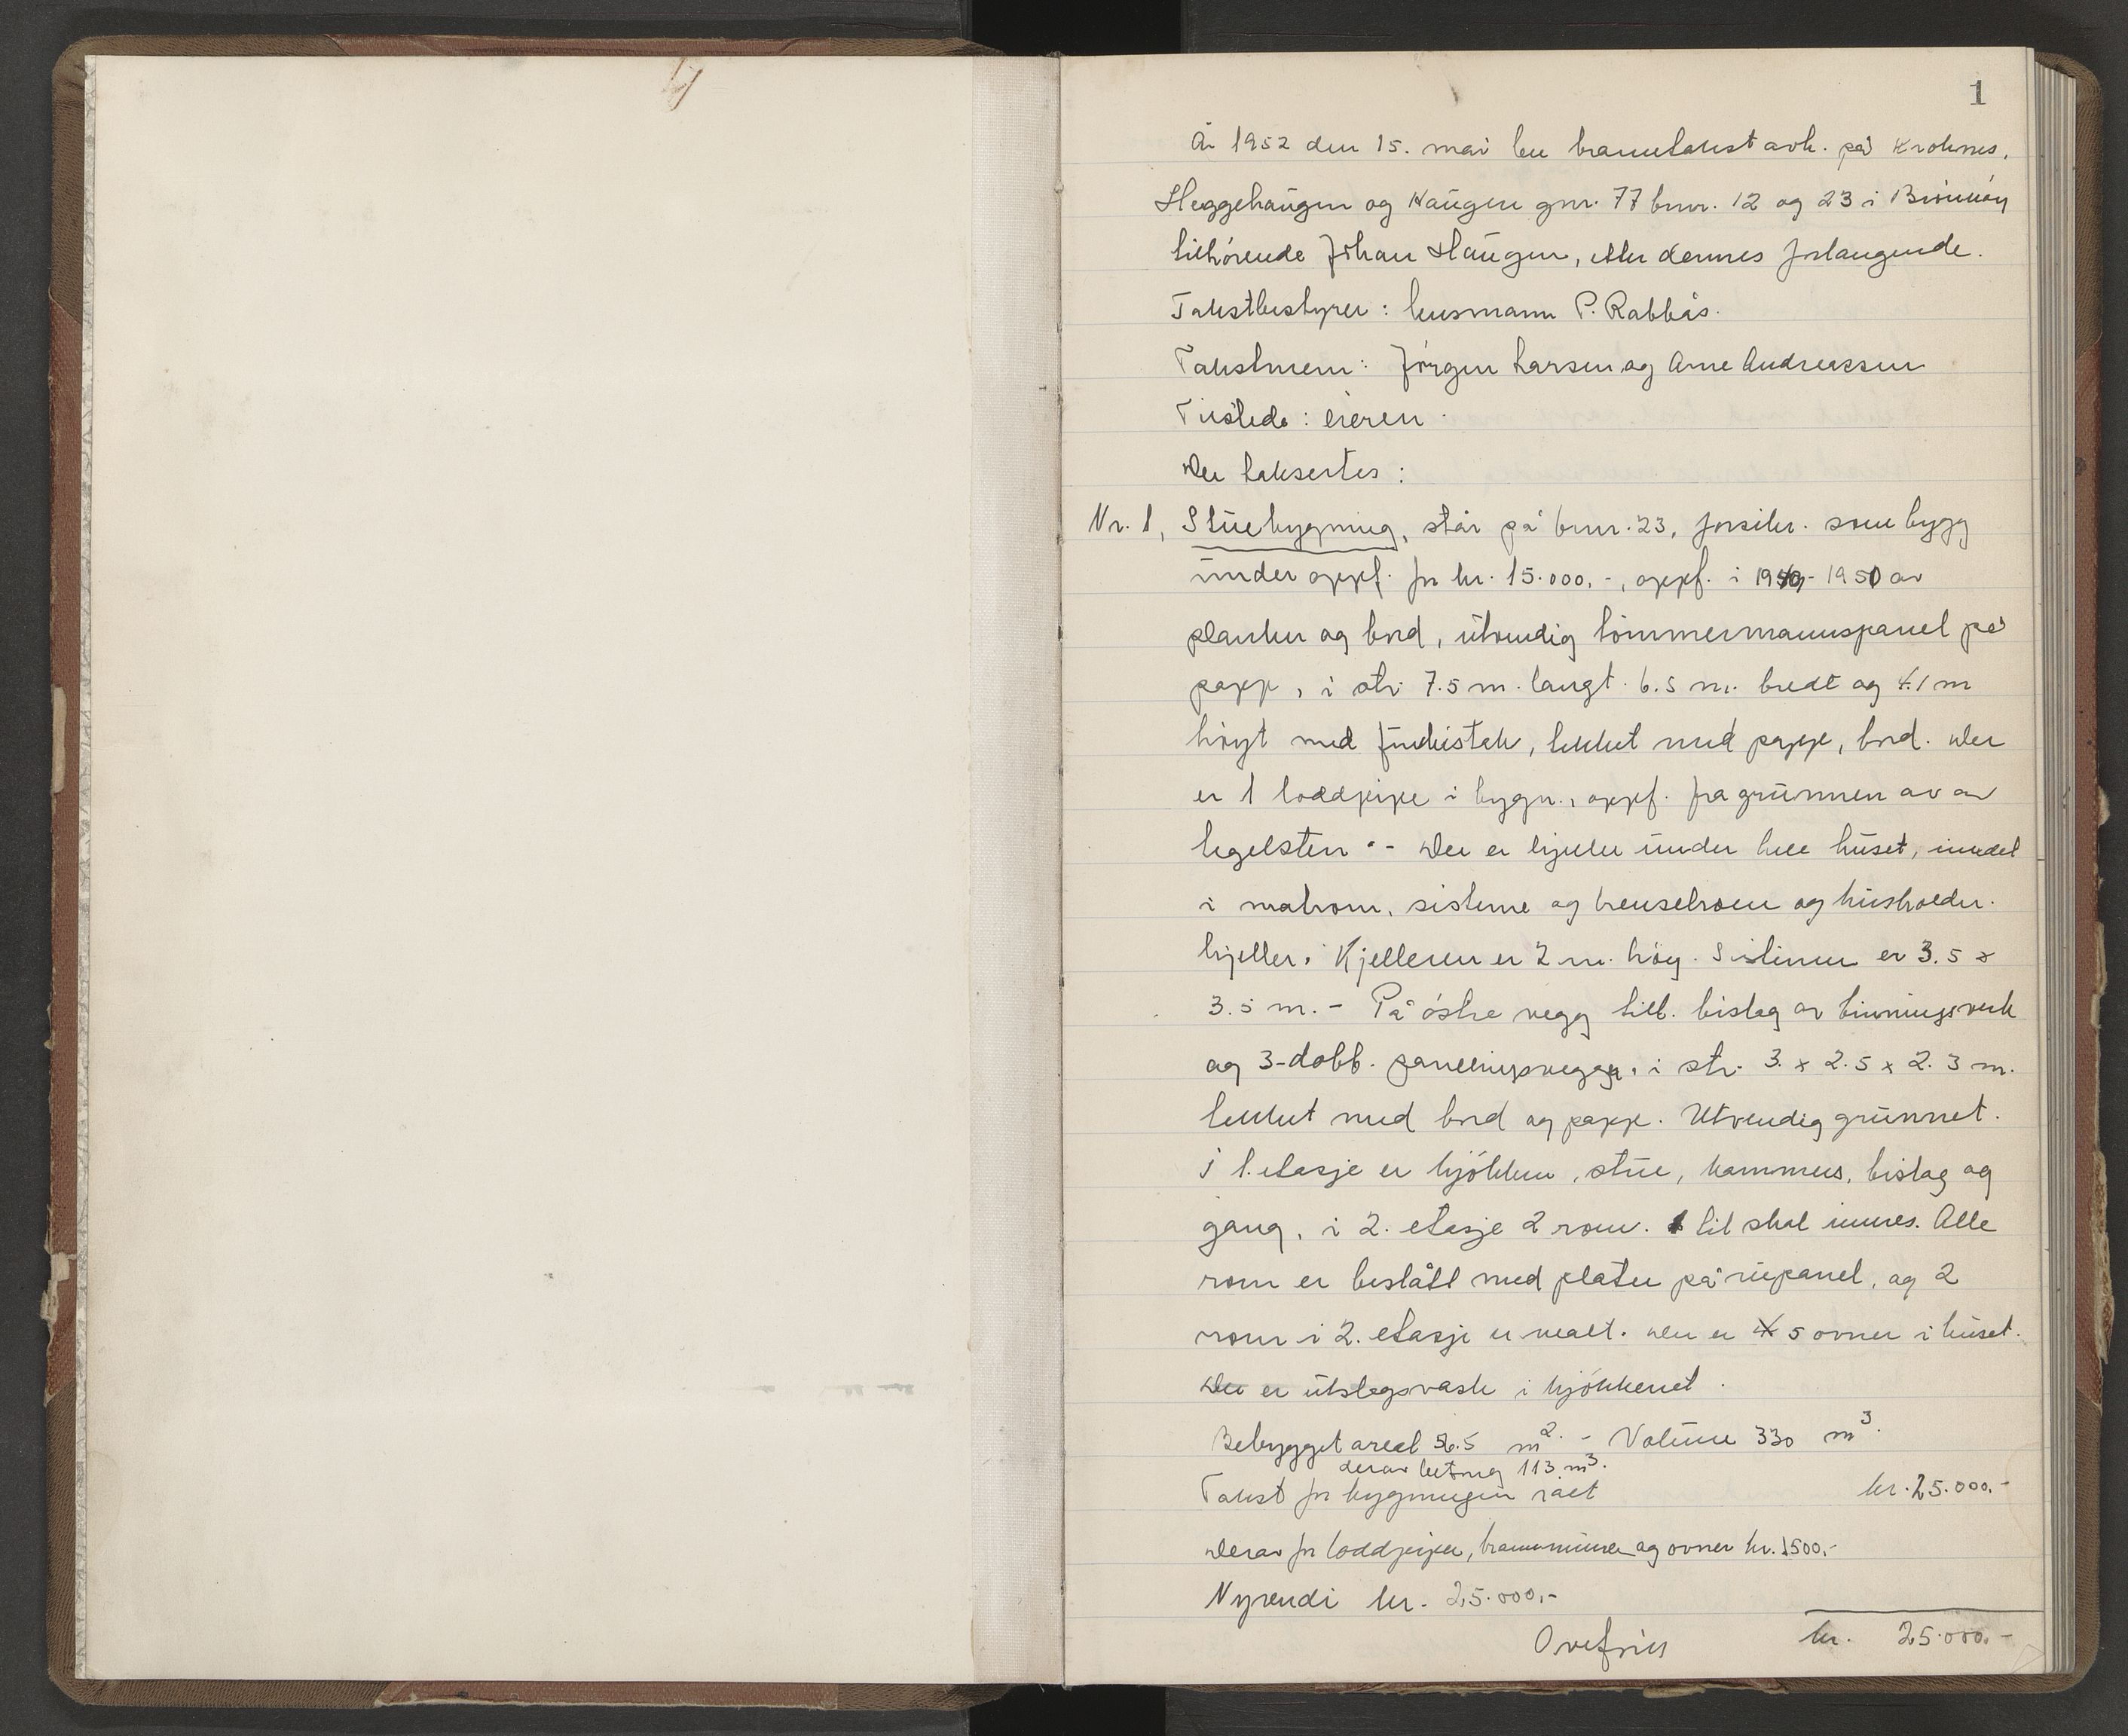 1
År 1952 den 15. mai ble branntakst avh. på Kroknes,
Heggehaugen og Haugen gnr. 77 bnr. 12 og 23 i Brönnöy
tilhörende Johan Haugen, etter dennes forlangende.
Takstbestyrer: lensmann P. Rabbås.
Takstmenn: Jörgen Larsen og Arne Andreassen
Tilstede: eieren.
Der taksertes:
Nr. 1, Stuebygning, står på bnr. 23, forsikr. som bygg
under oppf. for kr. 15.000.-, oppf. i 1949-1950 av
planker og bord, utvendig tömmermannspanel på
papp, i str. 7.5 m. langt. 6.5 m. bredt og 4.1 m
höyt med tekket med papp, bord. Der
er 1 loddpipe i bygn., oppf. fra grunnen av av
teglsten. - Der er kjeller under hele huset, inndel
i matrom, sisterne og brenselrom og husholdn.
kjeller. Kjelleren er 2 m. höy. Sisternen er 3.5 x
3.5 m. - På östre vegg tilb. bislag av binningsverk
og 3-dobb. panelingsvegger, i str. 3. x 2.5 x 2.3 m.
tekket med bord og papp. Utvendig grunnet.
I 1. etasje er kjökken, stue, kammers, bislag og
gang, i 2. etasje 2 rom. 1 til skal innres. Alle
rom er beslått med plater på rupanel, og 2
rom i 2. etasje er malt. Der er 5 ovner i huset.
Der er utslagsvask i kjökkenet.
Bebygget areal 56.5 m2. - Volume 330 m3.
derav betong 113 m3.
Takst for bygningen satt kr. 25.000.-
Derav for loddpiper, brannmurer og ovner kr. 1500.-
Nyverdi kr. 25.000.-
Overföres kr. 25.000.-